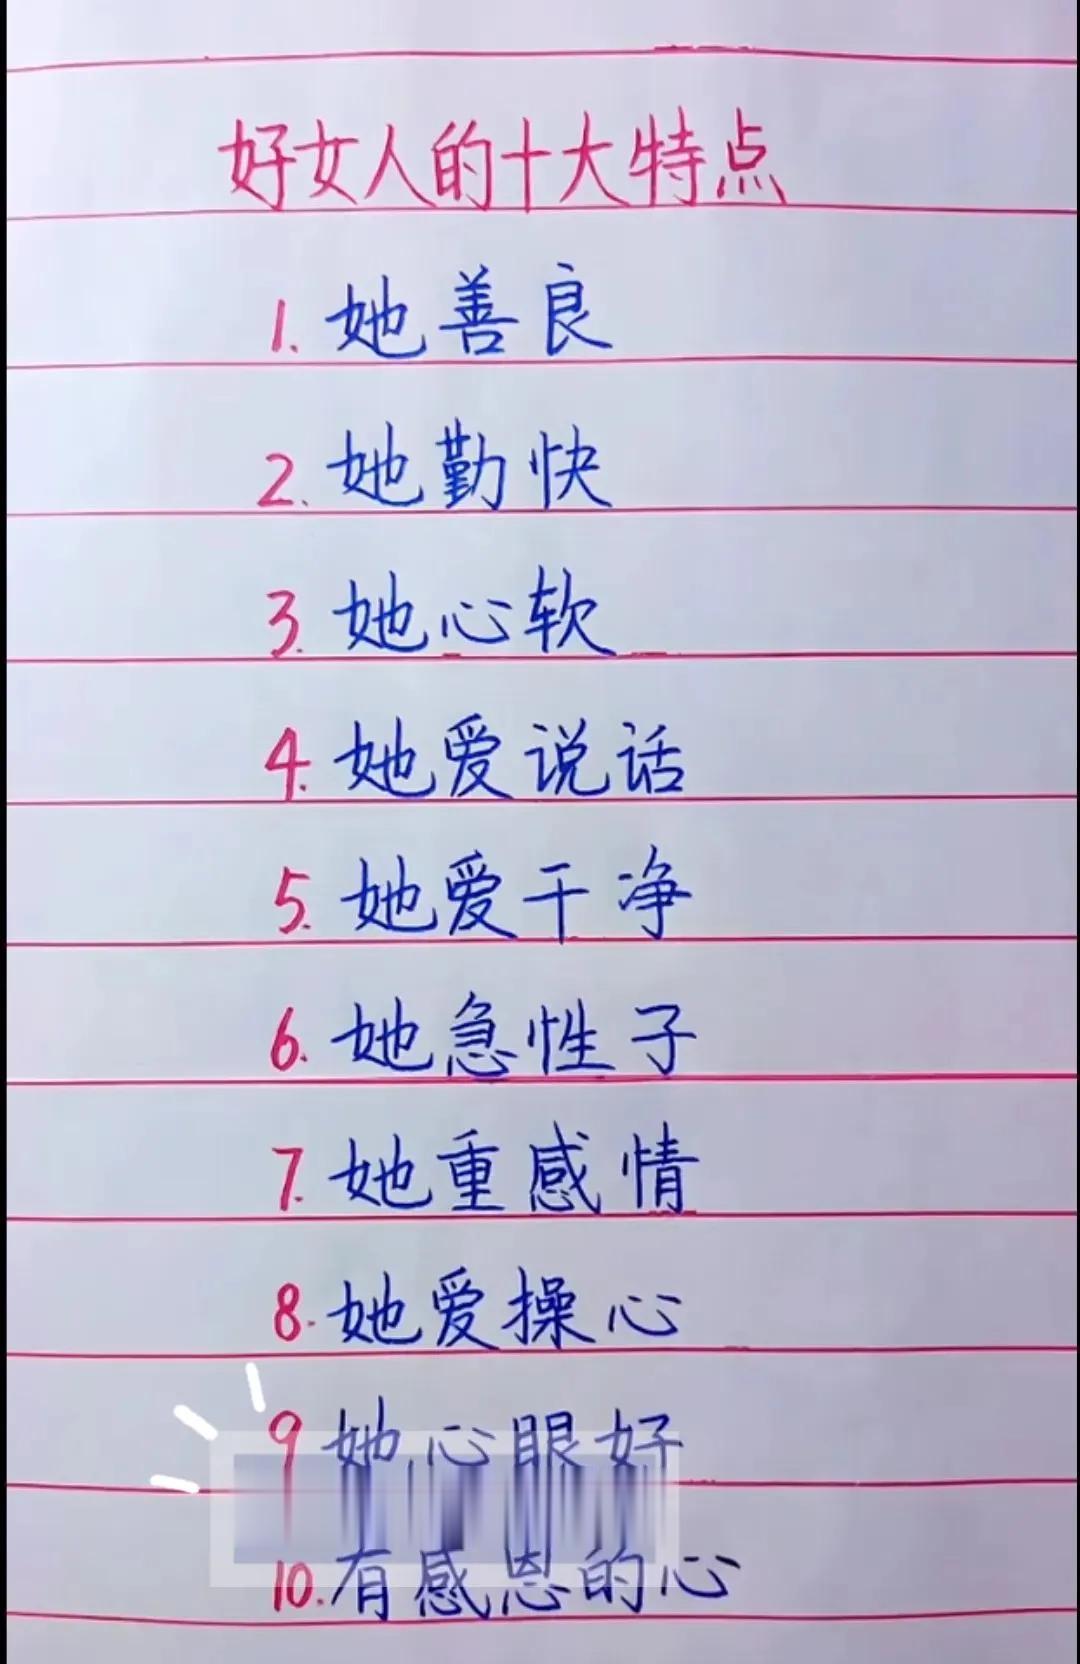 好女人的十大特点
1. 她善良
2. 她勤快
3. 她心软
4. 她爱说话
5. 她爱干净
6. 她急性子
7. 她重感情
8. 她爱操心
9 她心眼好
10. 有感恩的心